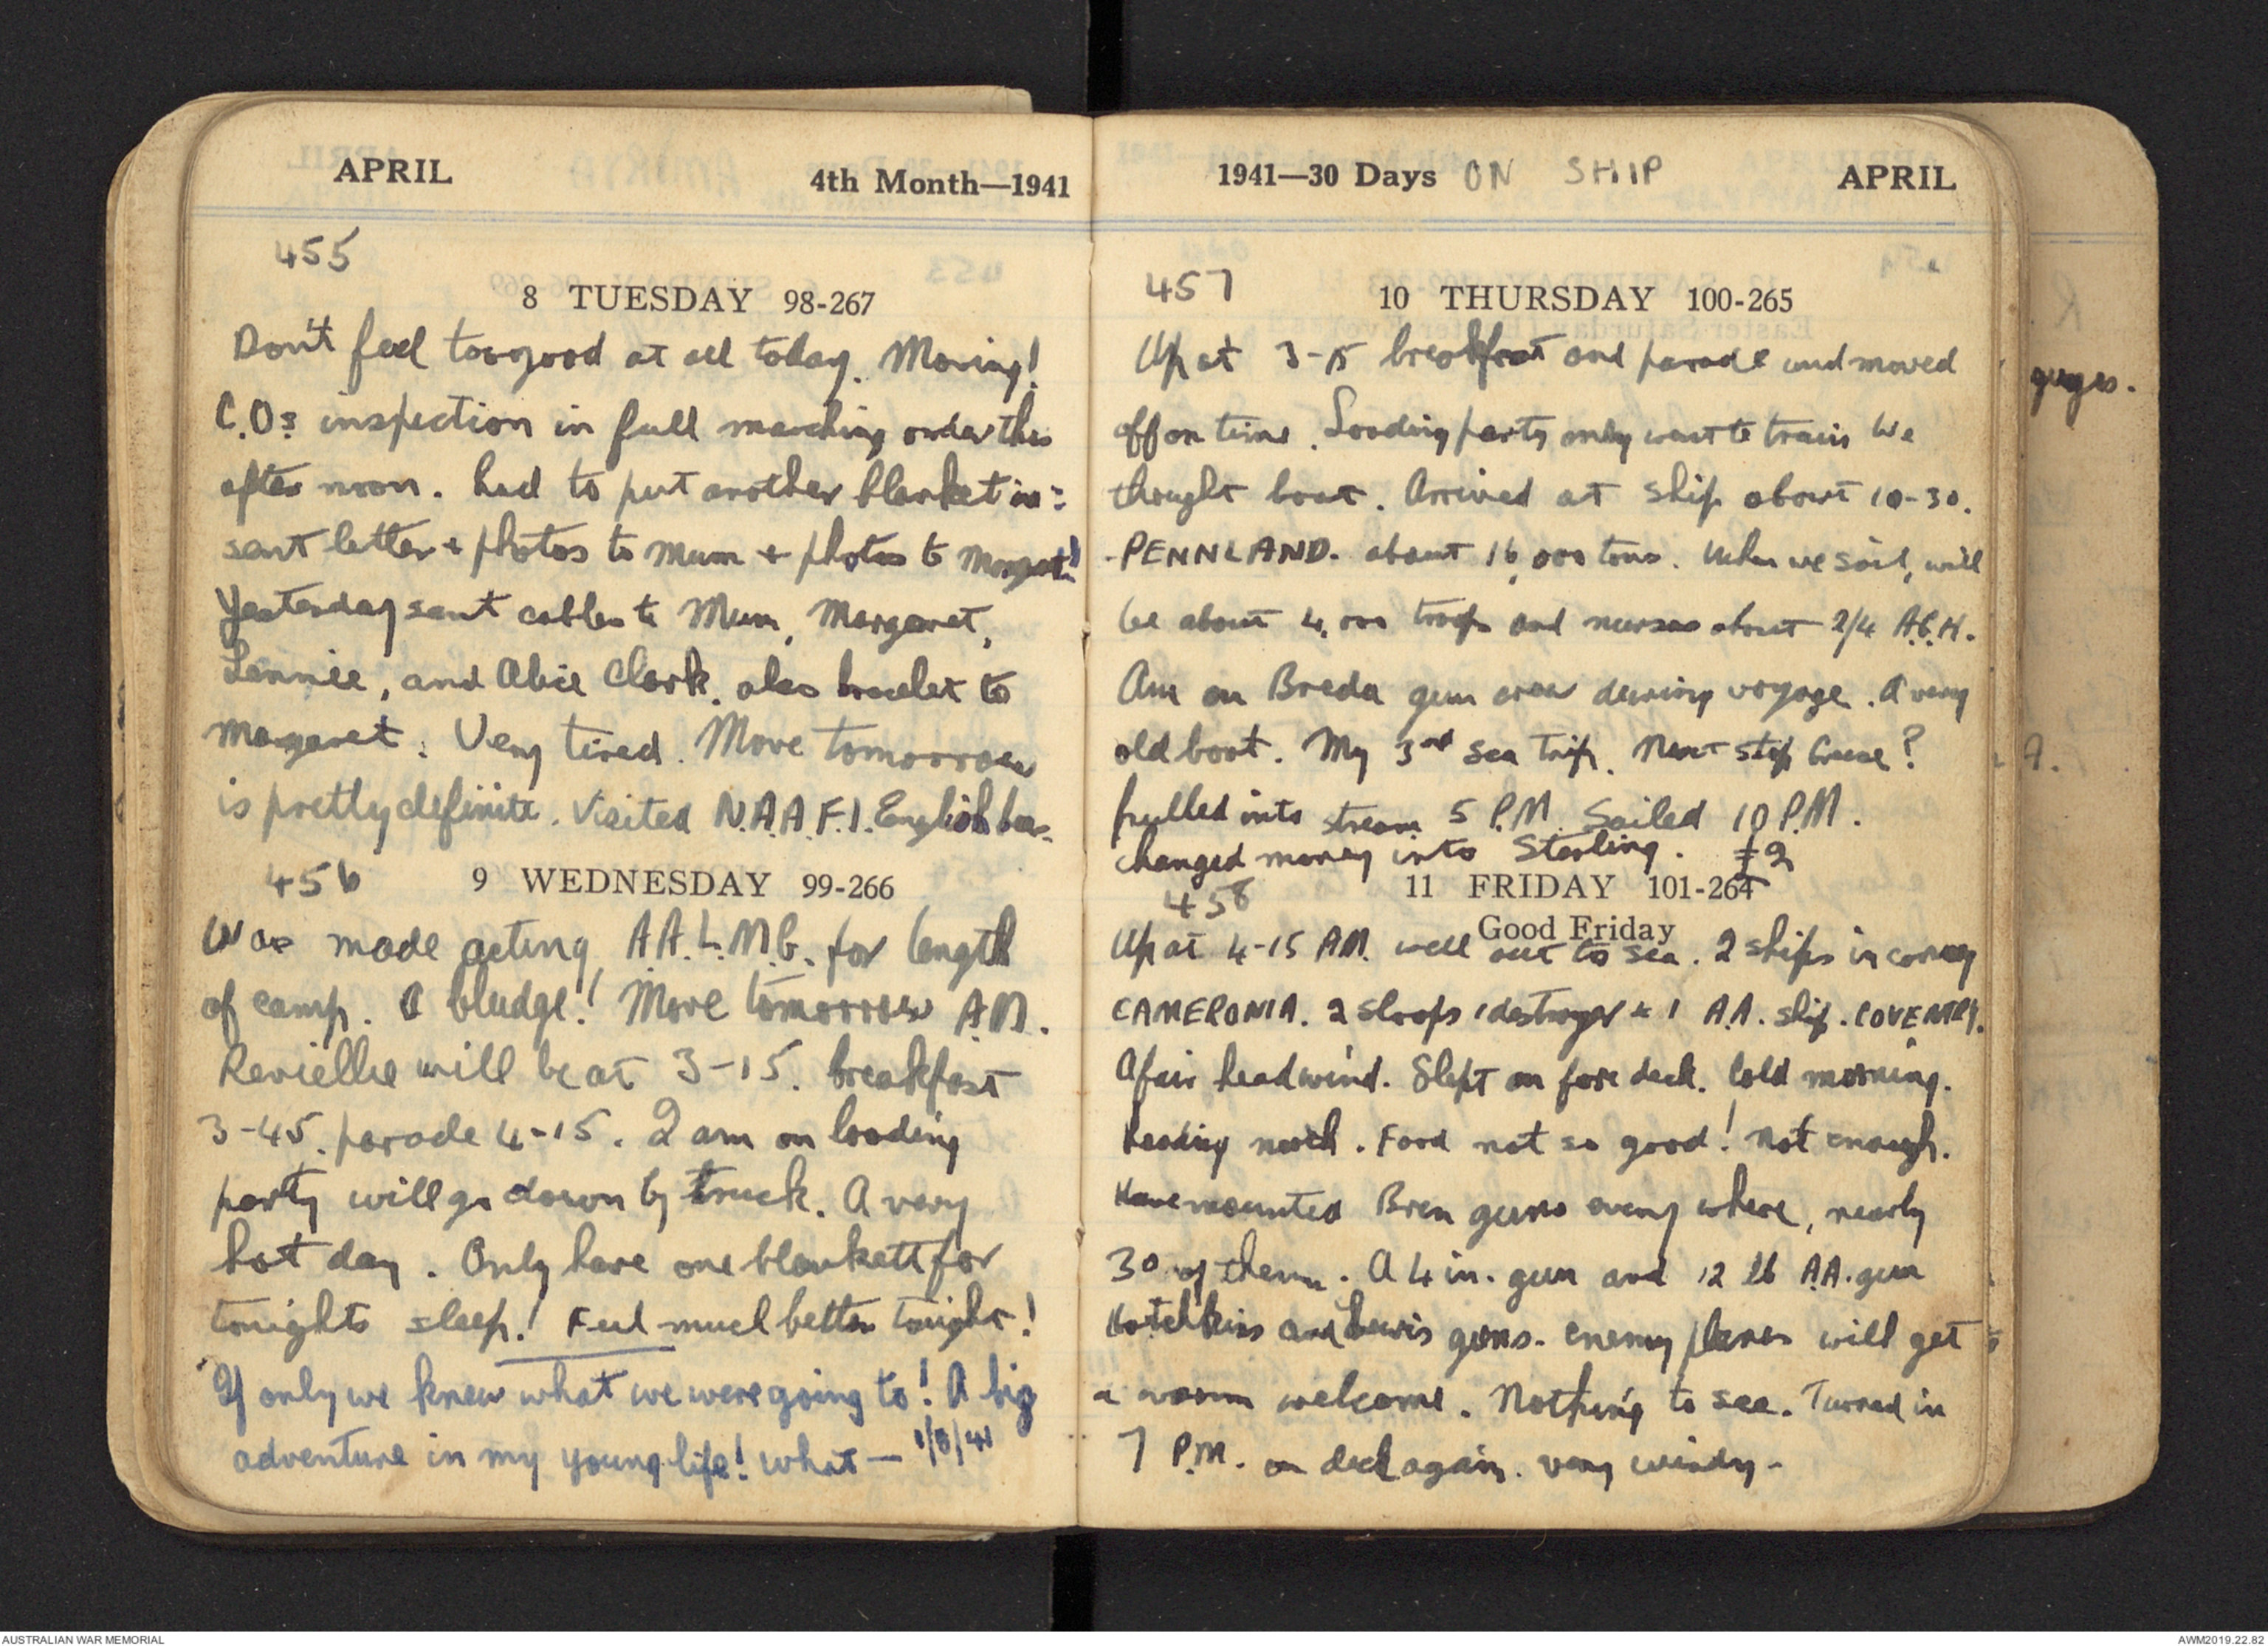 APRIL 4th Month—1941
455
8 TUESDAY 98-267
Don't feel too good at all today. Moving!
C.Os inspection in full marching order this
after noon. had to put another blanket in:
sent letter + photos to Mum + photos to Margaret!
Yesterday sent cables to Mum, Margaret,
Lennie, and Alice Clark. also bracelet to
Margaret. Very tired. Move tomorrow
is pretty definite. Visited N.A.A.F.I. English bar.
456
9 WEDNESDAY 99-266
Was made acting A.A.L.M.G. for length
of camp. A bludge! Move tomorrow A.M.
Revielle will be at 3-15. breakfast
3-45. parade 4-15. I am on loading
party will go down by truck. A very
hot day. Only have one blankett for
tonights sleep! Feel much better tonight!
If only we knew what we were going to! A big
adventure in my young life! what — 1/8/41
1941—30 Days ON SHIP APRIL
457
10 THURSDAY 100-265
Up at 3-15 breakfast and parade and moved
off on time. Loading party only went to train we
thought boat. Arrived at ship about 10-30.
PENNLAND. about 16,000 tons. When we sail, will
be about 4,000 troops and nurses about 2/4 A.G.H.
Am on Breda gun crew during voyage. A very
old boat. My 3rd sea trip. Next stop Greece?
pulled into stream 5 P.M. Sailed 10 P.M.
changed money into Sterling. £2
458
11 FRIDAY 101-264
Good Friday
Up at 4-15 AM. well out to sea. 2 ships in convoy
CAMERONIA. 2 sloops 1 destroyer + 1 A.A. ship. COVENTRY.
A fair head wind. Slept on fore deck. Cold morning.
heading north. Food not so good! Not enough.
Have mounted Bren guns every where, nearly
30 of them. A 4 in. gun and 12 lb A.A. gun
Hotchkiss and Lewis guns. enemy planes will get
a warm welcome. Nothing to see. Turned in
7 P.M. on deck again. very windy-
A.
AUSTRALIAN WAR MEMORIAL
AWM2019.22.82